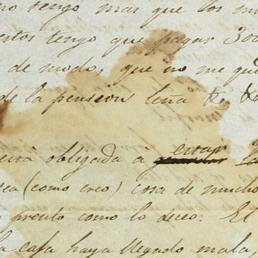 no tengo mas que los m
tengo que pagar 300
de modo, que no me que
de la pension leña &
obligada a cerrar
sea (como creo) cosa de mucho
pronto como lo deseo: El
la casa haya llegado mala,